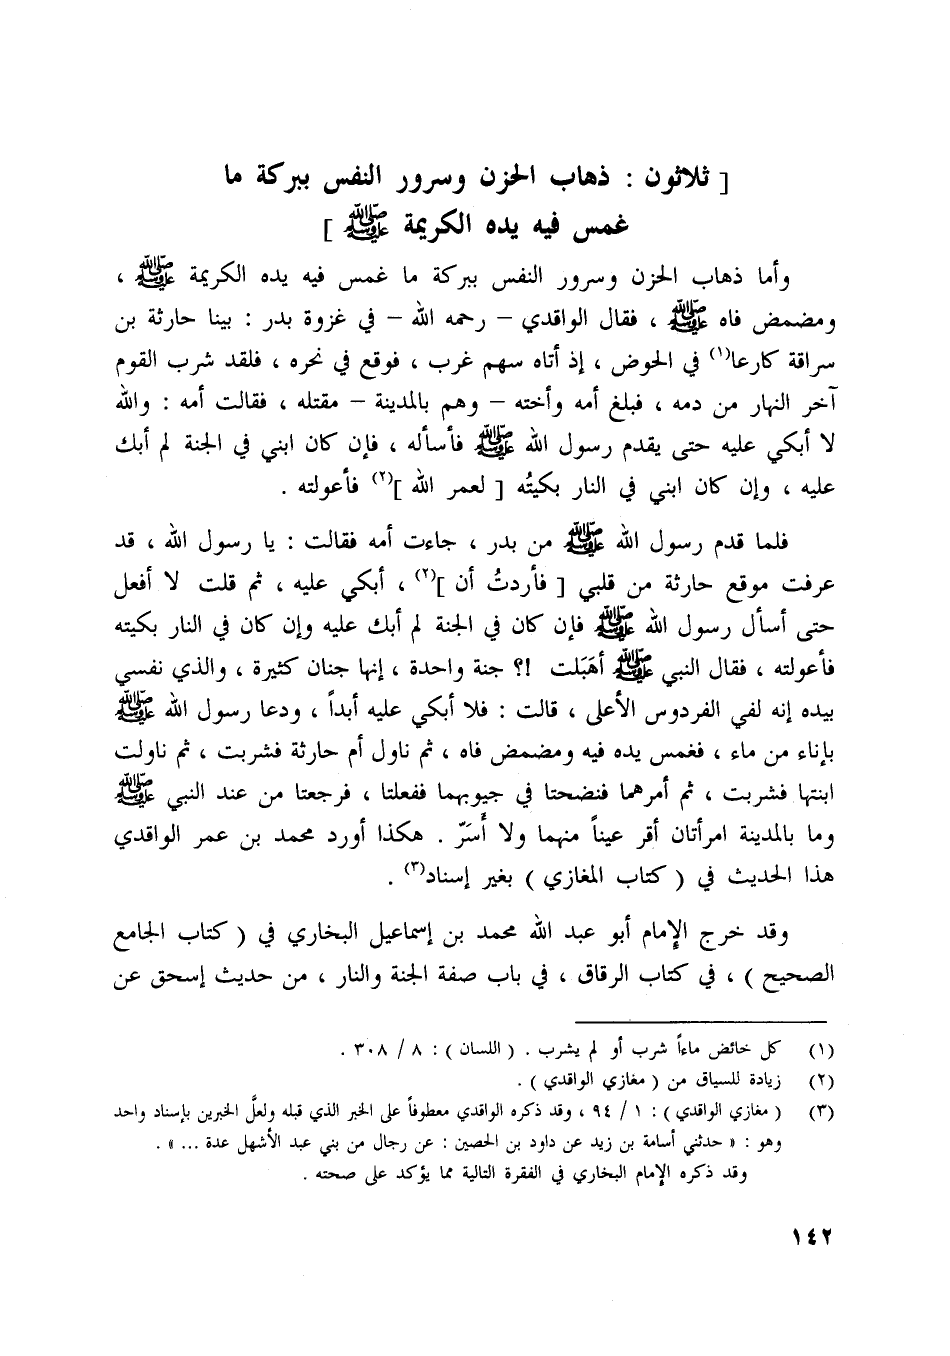 [ ثلاثون : ذهاب الحزن وسرور النفس ببركة ما
غمس فيه يده الكريمة ﷺ ]
وأما ذهاب الحزن وسرور النفس ببركة ما غمس فيه يده الكريمة ﷺ ،
ومضمض فاه ﷺ ، فقال الواقدي – رحمه الله – في غزوة بدر : بينا حارثة بن
سراقة كارعا(١) في الحوض ، إذ أتاه سهم غرب ، فوقع في نحره ، فلقد شرب القوم
آخر النهار من دمه ، فبلغ أمه وأخته – وهم بالمدينة – مقتله ، فقالت أمه : والله
لا أبكي عليه حتى يقدم رسول الله ﷺ فأسأله ، فإن كان ابني في الجنة لم أبك
عليه ، وإن كان ابني في النار بكيتُه [ لعمر الله ](٢) فأعولته .
فلما قدم رسول الله ﷺ من بدر ، جاءت أمه فقالت : يا رسول الله ، قد
عرفت موقع حارثة من قلبي [ فأردتُ أن ](٢) ، أبكي عليه ، ثم قلت لا أفعل
حتى أسأل رسول الله ﷺ فإن كان في الجنة لم أبك عليه وإن كان في النار بكيته
فأعولته ، فقال النبي ﷺ أهَبَلت !؟ جنة واحدة ، إنها جنان كثيرة ، والذي نفسي
بيده إنه لفي الفردوس الأعلى ، قالت : فلا أبكي عليه أبداً ، ودعا رسول الله ﷺ
بإناء من ماء ، فغمس يده فيه ومضمض فاه ، ثم ناول أم حارثة فشربت ، ثم ناولت
ابنتها فشربت ، ثم أمرهما فنضحتا في جيوبهما ففعلتا ، فرجعتا من عند النبي ﷺ
وما بالمدينة امرأتان أقر عيناً منهما ولا أَسَرّ . هكذا أورد محمد بن عمر الواقدي
هذا الحديث في ( كتاب المغازي ) بغير إسناد(٣) .
وقد خرج الإمام أبو عبد الله محمد بن إسماعيل البخاري في ( كتاب الجامع
الصحيح ) ، في كتاب الرقاق ، في باب صفة الجنة والنار ، من حديث إسحق عن
(١) كل خائض ماءاً شرب أو لم يشرب . ( اللسان ) : ٨ / ٣٠٨ .
(٢) زيادة للسياق من ( مغازي الواقدي ) .
(٣) ( مغازي الواقدي ) : ١ / ٩٤ ، وقد ذكره الواقدي معطوفاً على الخبر الذي قبله ولعلَّ الخبرين بإسناد واحد
وهو : « حدثني أسامة بن زيد عن داود بن الحصين : عن رجال من بني عبد الأشهل عدة ... » .
وقد ذكره الإمام البخاري في الفقرة التالية مما يؤكد على صحته .
١٤٢